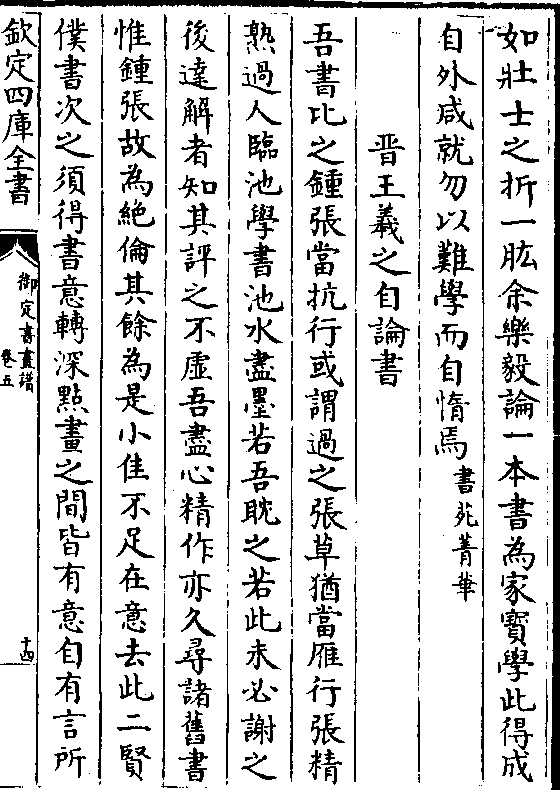 如壯士之折一肱余樂毅論一本書為家寳學此得成
自外咸就勿以難學而自惰焉書苑菁華
晋王羲之自論書
吾書比之鍾張當抗行或謂過之張草猶當雁行張精
熟過人臨池學書池水盡墨若吾耽之若此未必謝之
後達解者知其評之不虛吾盡心精作亦久尋諸舊書
惟鍾張故為絶倫其餘為是小佳不足在意去此二賢
僕書次之須得書意轉深點畫之間皆有意自有言所
欽定四庫全書
御定書畫譜
卷五
十四